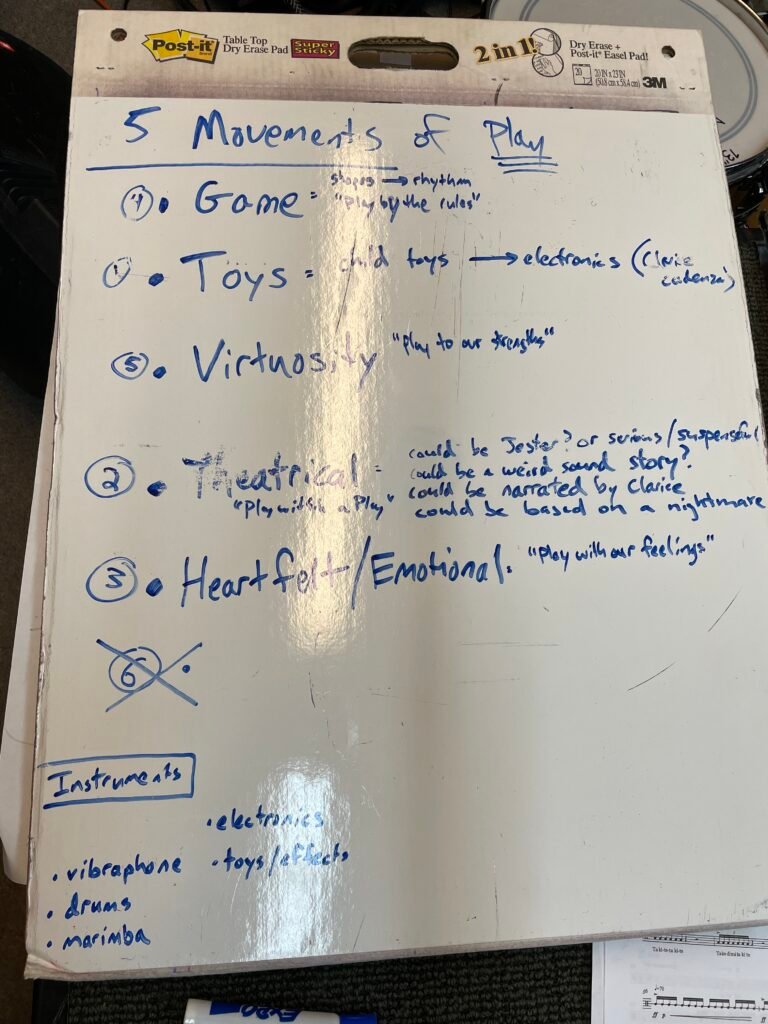 Post-it
Table Top
Dry Erase Pad
Super
Sticky
2 in 1!
Dry Erase +
Post-it® Easel Pad!
20
20 IN x 23 IN
(50.8 cm x 58.4 cm)
3M
5 Movements of Play
shapes → rhythm
④ • Game = "play by the rules"
① • Toys = child toys → electronics (Clarice
cadenza)
⑤ • Virtuosity "play to our strengths"
could be Jester? or serious/suspenseful
② • Theatrical = could be a weird sound story?
"Play within a Play" could be narrated by Clarice
could be based on a nightmare
③ • Heartfelt/Emotional. "play with our feelings"
⑥ •
Instruments
• electronics
• vibraphone • toys/effects
• drums
• marimba
EXPO